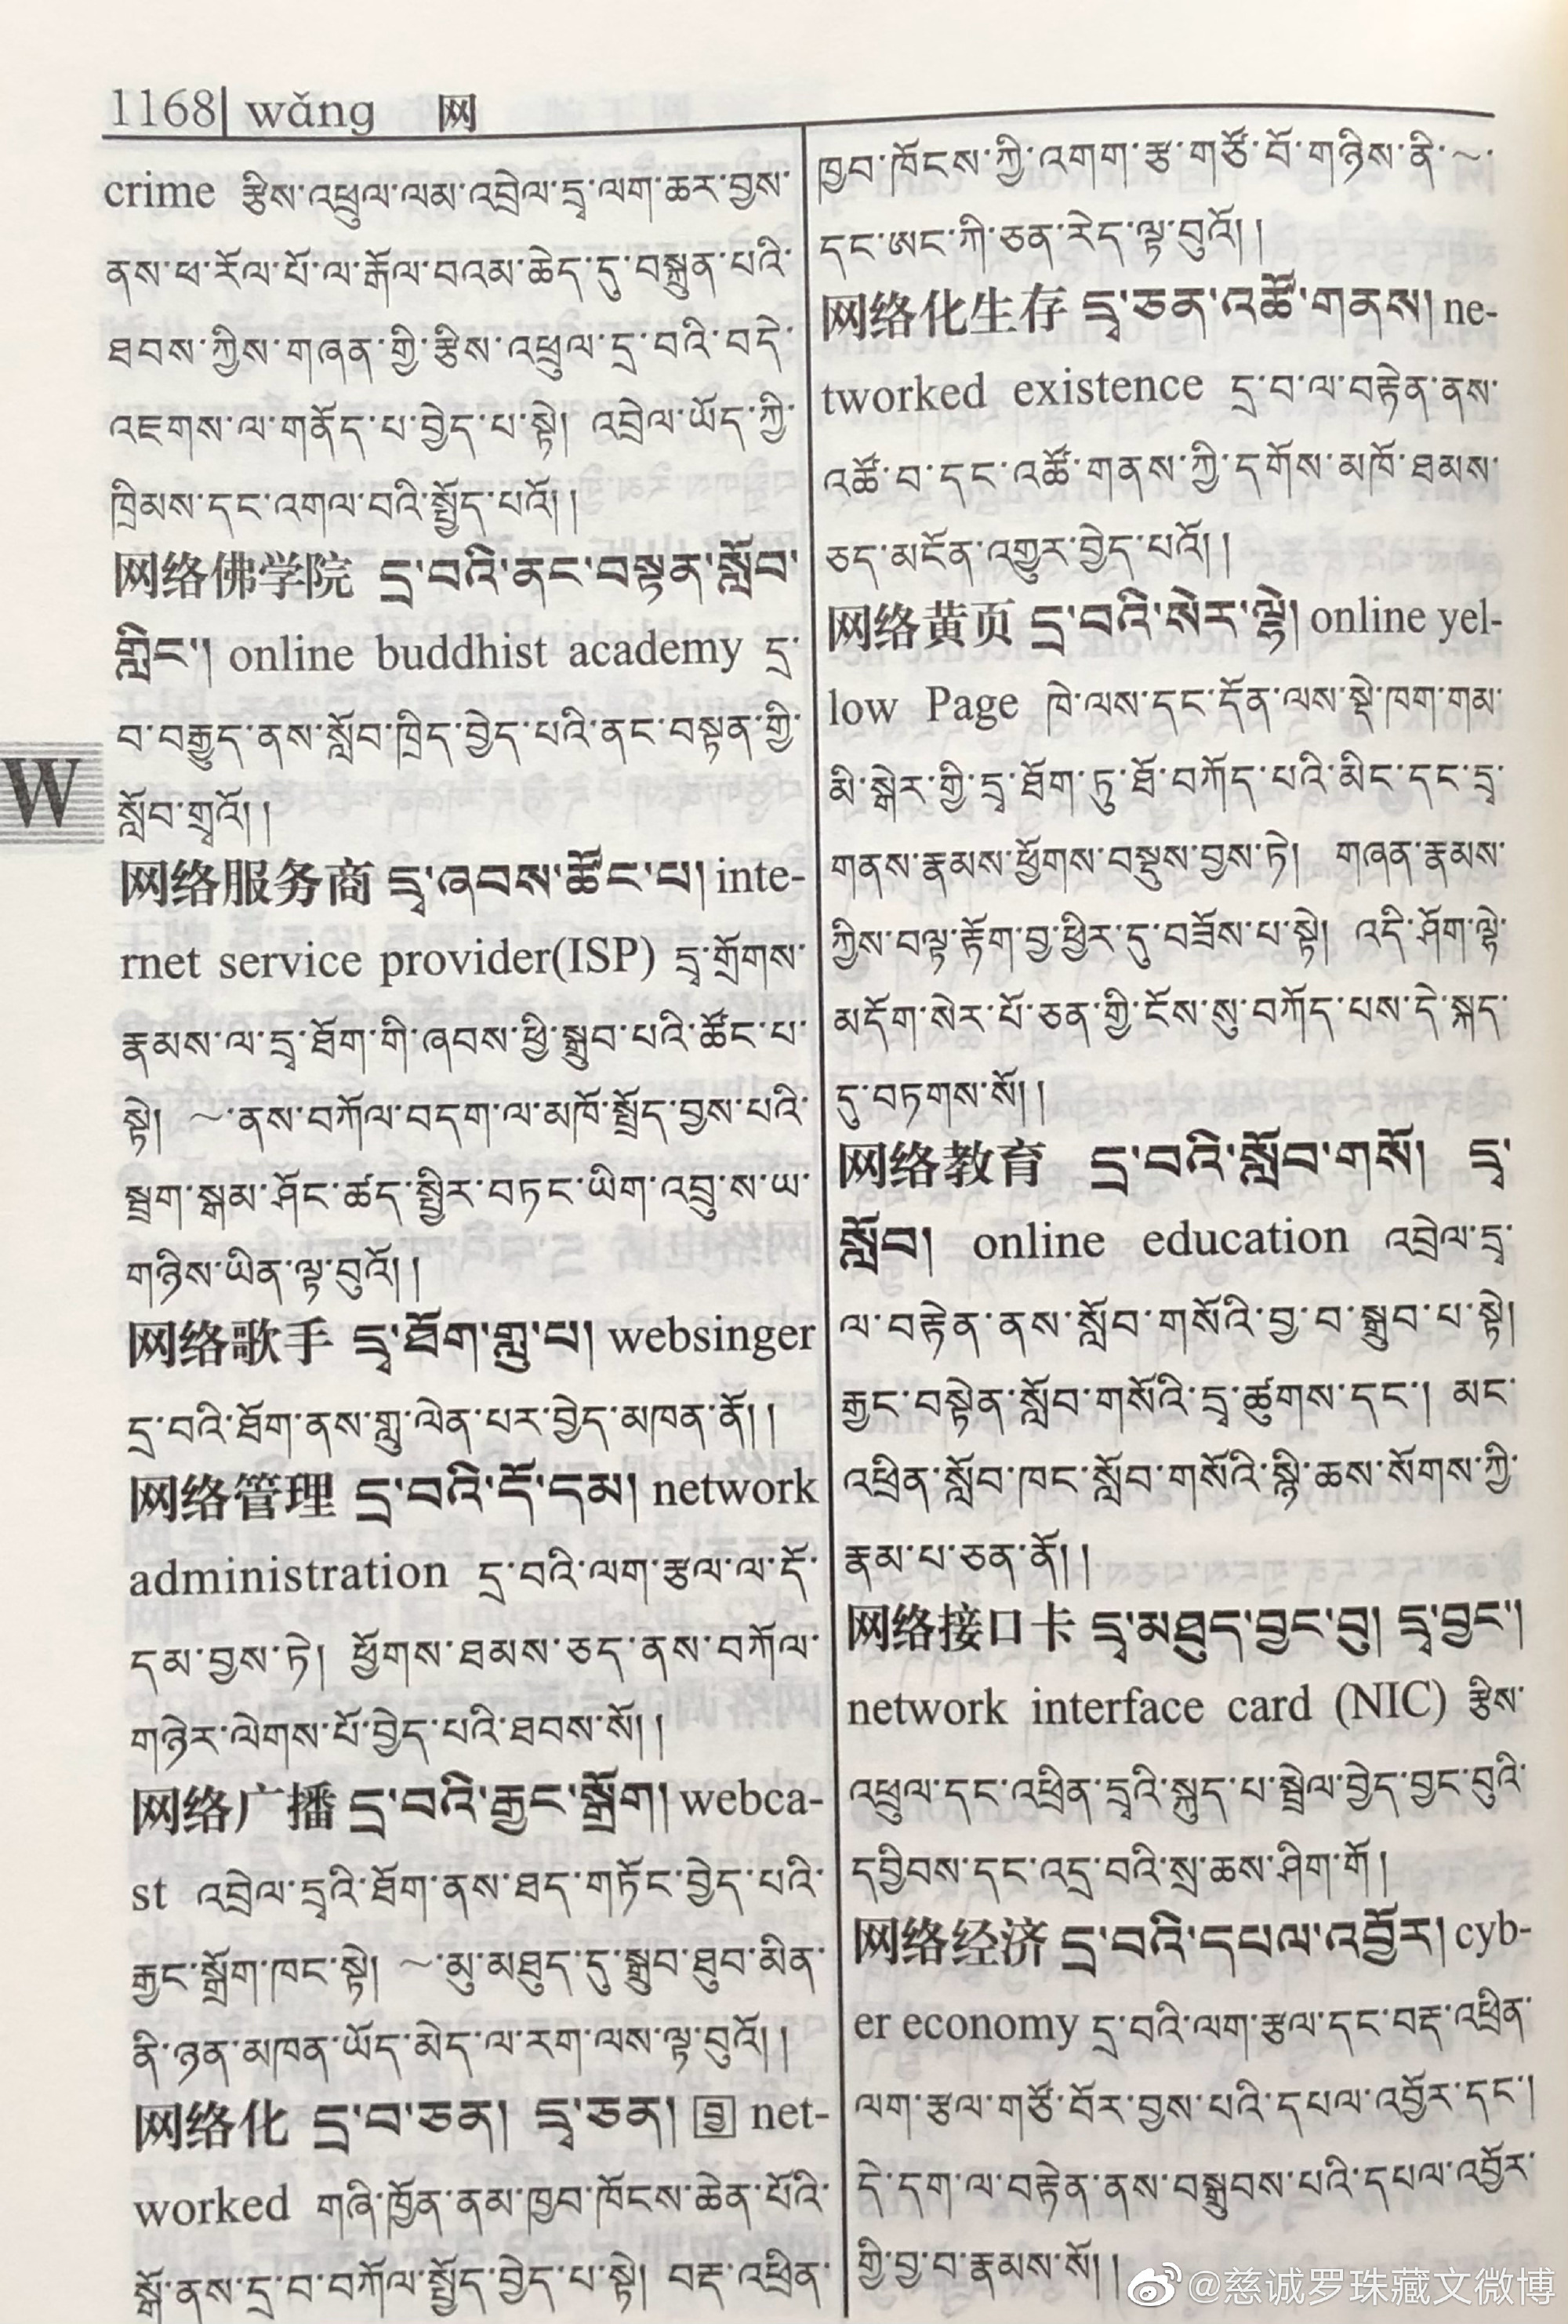 1168 wǎng 网
crime རྩིས་འཕྲུལ་ལམ་འབྲེལ་དྲྭ་ལག་ཆར་བྱས་
ནས་ཕ་རོལ་པོ་ལ་རྒོལ་བའམ་ཆེད་དུ་བསྐྲུན་པའི་
ཐབས་ཀྱིས་གཞན་གྱི་རྩིས་འཕྲུལ་དྲ་བའི་བདེ་
འཇགས་ལ་གནོད་པ་བྱེད་པ་སྟེ། འབྲེལ་ཡོད་ཀྱི་
ཁྲིམས་དང་འགལ་བའི་སྤྱོད་པའོ།།
网络佛学院 དྲ་བའི་ནང་བསྟན་སློབ་
གླིང་། online buddhist academy དྲ་
བ་བརྒྱུད་ནས་སློབ་ཁྲིད་བྱེད་པའི་ནང་བསྟན་གྱི་
སློབ་གྲྭའོ།།
网络服务商 དྲྭ་ཞབས་ཚོང་པ། inte-
rnet service provider(ISP) དྲྭ་གྲོགས་
རྣམས་ལ་དྲྭ་ཐོག་གི་ཞབས་ཕྱི་སྒྲུབ་པའི་ཚོང་པ་
སྟེ། ~་ནས་བཀོལ་བདག་ལ་མཁོ་སྤྲོད་བྱས་པའི་
སྦྲག་སྒམ་ཤོང་ཚད་སྤྱིར་བཏང་ཡིག་འབྲུ་ས་ཡ་
གཉིས་ཡིན་ལྟ་བུའོ།།
网络歌手 དྲྭ་ཐོག་གླུ་པ། websinger
དྲ་བའི་ཐོག་ནས་གླུ་ལེན་པར་བྱེད་མཁན་ནོ།།
网络管理 དྲ་བའི་དོ་དམ། network
administration དྲ་བའི་ལག་རྩལ་ལ་དོ་
དམ་བྱས་ཏེ། ཕྱོགས་ཐམས་ཅད་ནས་བཀོལ་
གཉེར་ལེགས་པོ་བྱེད་པའི་ཐབས་སོ།།
网络广播 དྲ་བའི་རྒྱང་སྒྲོག། webca-
st འབྲེལ་དྲྭའི་ཐོག་ནས་ཐད་གཏོང་བྱེད་པའི་
རྒྱང་སྒྲོག་ཁང་སྟེ། ~་མུ་མཐུད་དུ་སྒྲུབ་ཐུབ་མིན་
ནི་ཉན་མཁན་ཡོད་མེད་ལ་རག་ལས་ལྟ་བུའོ།།
网络化 དྲ་བ་ཅན། དྲྭ་ཅན། net-
worked གཞི་ཁྱོན་ནམ་ཁྱབ་ཁོངས་ཆེན་པོའི་
སྒོ་ནས་དྲ་བ་བཀོལ་སྤྱོད་བྱེད་པ་སྟེ། བརྡ་འཕྲིན་
ཁྱབ་ཁོངས་ཀྱི་འགག་རྩ་གཙོ་བོ་གཉིས་ནི་~་
དང་ཨང་ཀི་ཅན་རེད་ལྟ་བུའོ།།
网络化生存 དྲྭ་ཅན་འཚོ་གནས། ne-
tworked existence དྲ་བ་ལ་བརྟེན་ནས་
འཚོ་བ་དང་འཚོ་གནས་ཀྱི་དགོས་མཁོ་ཐམས་
ཅད་མངོན་འགྱུར་བྱེད་པའོ།།
网络黄页 དྲ་བའི་སེར་ལྡེ། online yel-
low Page ཁེ་ལས་དང་དོན་ལས་སྡེ་ཁག་གམ་
མི་སྒེར་གྱི་དྲྭ་ཐོག་ཏུ་ཐོ་བཀོད་པའི་མིང་དང་དྲྭ་
གནས་རྣམས་ཕྱོགས་བསྡུས་བྱས་ཏེ། གཞན་རྣམས་
ཀྱིས་བལྟ་རྟོག་བྱ་ཕྱིར་དུ་བཟོས་པ་སྟེ། འདི་ཤོག་ལྡེ་
མདོག་སེར་པོ་ཅན་གྱི་ངོས་སུ་བཀོད་པས་དེ་སྐད་
དུ་བཏགས་སོ།།
网络教育 དྲ་བའི་སློབ་གསོ། དྲྭ་
སློབ། online education འབྲེལ་དྲྭ་
ལ་བརྟེན་ནས་སློབ་གསོའི་བྱ་བ་སྒྲུབ་པ་སྟེ།
རྒྱང་བསྟེན་སློབ་གསོའི་དྲྭ་ཚུགས་དང་། མང་
འཕྲིན་སློབ་ཁང་སློབ་གསོའི་སྙི་ཆས་སོགས་ཀྱི་
རྣམ་པ་ཅན་ནོ།།
网络接口卡 དྲྭ་མཐུད་བྱང་བུ། དྲྭ་བྱང་།
network interface card (NIC) རྩིས་
འཕྲུལ་དང་འཕྲིན་དྲྭའི་སྐུད་པ་སྦྲེལ་བྱེད་བྱང་བུའི་
དབྱིབས་དང་འདྲ་བའི་སྲ་ཆས་ཤིག་གོ།
网络经济 དྲ་བའི་དཔལ་འབྱོར། cyb-
er economy དྲ་བའི་ལག་རྩལ་དང་བརྡ་འཕྲིན་
ལག་རྩལ་གཙོ་བོར་བྱས་པའི་དཔལ་འབྱོར་དང་།
དེ་དག་ལ་བརྟེན་ནས་བསྒྲུབས་པའི་དཔལ་འབྱོར་
གྱི་བྱ་བ་རྣམས་སོ།།
W
@慈诚罗珠藏文微博